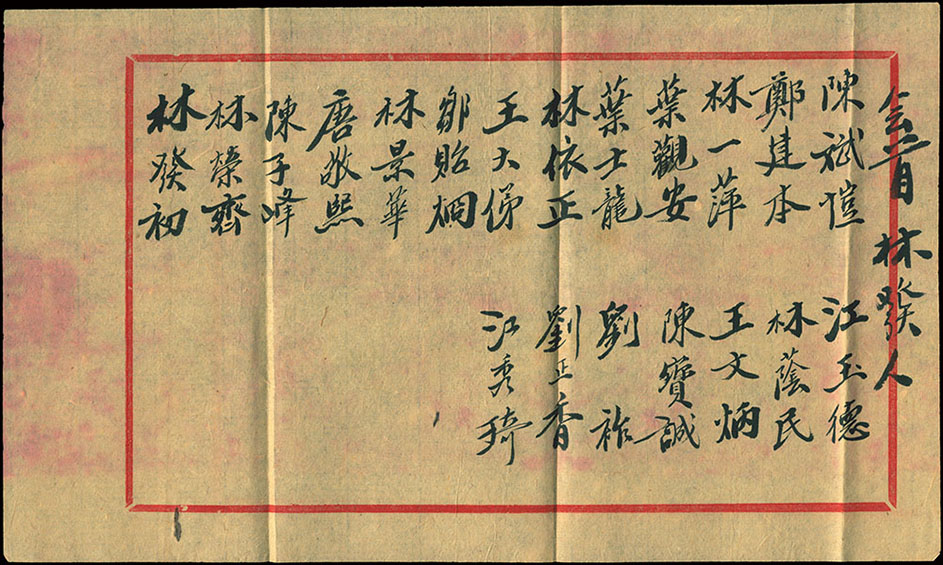 會首 林發人
陳斌愷 江玉德
鄭建本 林蔭民
林一萍 王文炳
葉觀安 陳寶誠
葉士龍 劉祚
林依正 劉正香
王大俤 江秀琦
鄒貽烱
林景華
唐敬熙
陳子峰
林榮齊
林發初